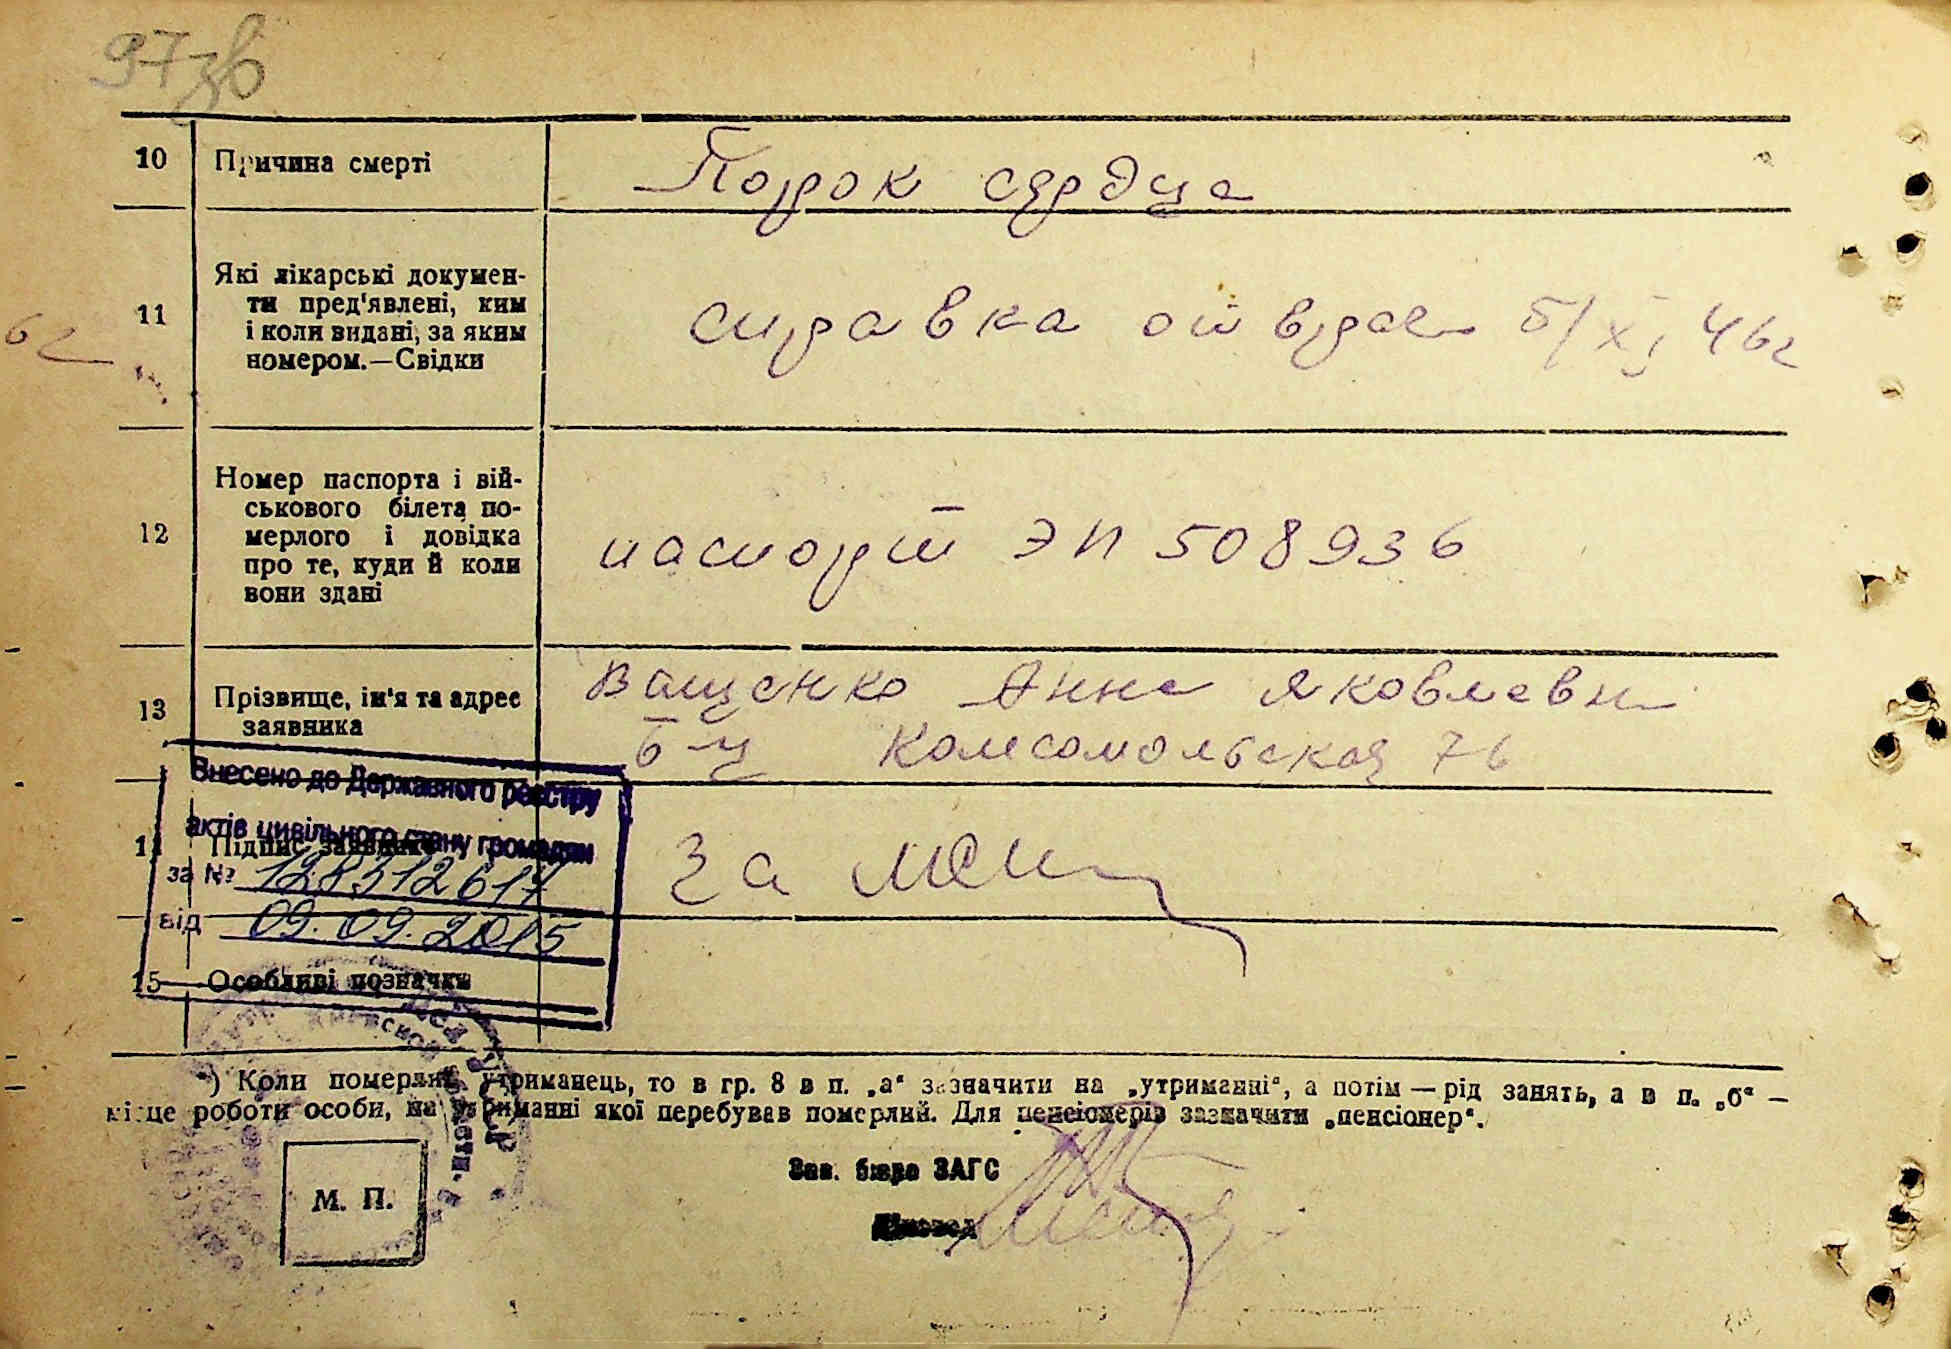 97зв
10 Причина смерті Порок сердца
11 Які лікарські докумен-
ти пред'явлені, ким
і коли видані, за яким
номером.—Свідки
справка от врача 5/XI 46г
12 Номер паспорта і вій-
ськового білета по-
мерлого і довідка
про те, куди й коли
вони здані
паспорт ЭП 508936
13 Прізвище, ім'я та адрес
заявника
Ващенко Анна Яковлевн
Б-Ц Комсомольская 76
Внесено до Державного реєстру
актів цивільного стану громадян
за № 128312617
від 09.09.2015
14 Підпис заявника
за
15 Особливі позначки
*) Коли померлий утриманець, то в гр. 8 в п. „а“ зазначити на „утриманні“, а потім — рід занять, а в п. „б“ —
місце роботи особи, на утриманні якої перебував померлий. Для пенсіонерів зазначити „пенсіонер“.
Зав. бюро ЗАГС
Діловод
М. П.